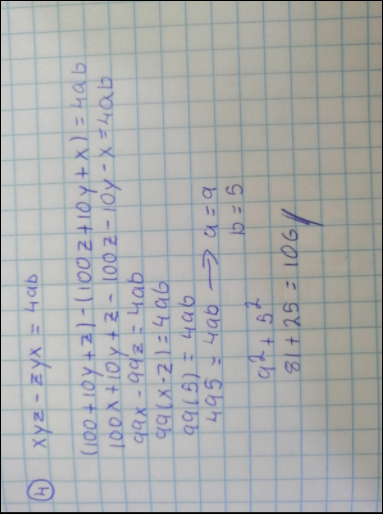 4 xyz - zyx = 4ab
(100+10y+z)-(100z+10y+x)=4ab
100x+10y+z-100z-10y-x=4ab
99x-99z=4ab
99(x-z)=4ab
99(5)=4ab
495=4ab → a=9
b=5
9²+5²
81+25=106